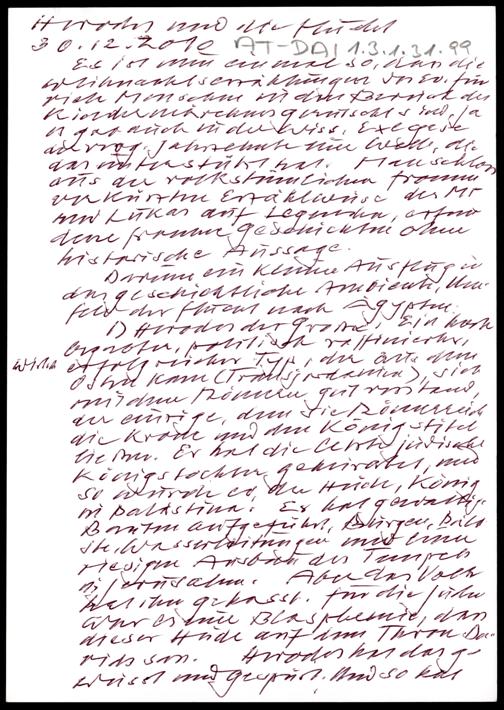 Herodes und die Flucht
30.12.2012 AT-DAI 1.3.1.31.99
Es ist nun einmal so, dass die
Weihnachtserzählungen des Ev. für
viele Menschen in den Bereich der
Kindermärchen gerutscht sind, ja
es gab auch in der wiss. Exegese
der vorg. Jahrzehnte eine Welle, die
das unterstützt hat. Man schloss
aus der volkstümlichen frommen
verkürzten Erzählweise des Mt
und Lukas auf Legenden, erfun
dene fromme Geschichten ohne
historische Aussage.
Darum ein kleiner Ausflug in
das geschichtliche Ambiente, Um
feld der Flucht nach Ägypten.
1) Herodes der Grosse. Ein hoch
begabter, politisch raffinierter,
erfolgreicher Typ, der aus dem
Osten kam (Transjordanien), sich
mit den Römern gut verstand,
der einzige, dem die Römer
die Krone und den Königstitel
liessen. Er hat die letzte jüdische
Königstochter geheiratet, und
so wurde er, der Heide, König
in Palästina. Er hat gewaltige
Bauten aufgeführt, Burgen,
Wasserleitungen und einen
riesigen Ausbau des Tempels
in Jerusalem. Aber das Volk
hat ihn gehasst. Für die Juden
war es eine Blasphemie, dass
dieser Heide auf dem Thron Da
vids sass. Herodes hat das ge
wusst und gespürt. Und so hat